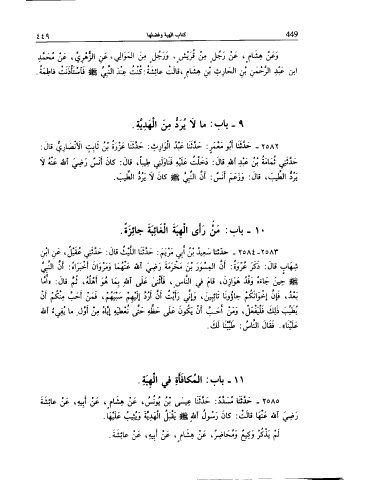 449 كتاب الهبة وفضلها ٤٤٩
وَعَنْ هِشَامٍ، عَنْ رَجُلٍ مِنْ قُرَيْشٍ. وَرَجُلٍ مِنَ المَوَالِي، عَنِ الزُّهْرِيِّ، عَنْ مُحَمَّدِ
ابنِ عَبدِ الرَّحْمٰنِ بْنِ الحَارِثِ بْنِ هِشَامٍ، قَالَتْ عَائِشَةُ: كُنْتُ عِنْدَ النَّبِيِّ ﷺ فَاسْتَأْذَنَتْ فَاطِمَةُ.
٩ - باب: ما لَا يُرَدُّ مِنَ الْهَدِيَّةِ.
٢٥٨٢ - حَدَّثَنَا أَبُو مَعْمَرٍ: حَدَّثَنَا عَبْدُ الْوَارِثِ: حَدَّثَنَا عَزْرَةُ بْنُ ثَابِتٍ الأَنْصَارِيُّ قَالَ:
حَدَّثَنِي ثُمَامَةُ بْنُ عَبْدِ اللهِ قَالَ: دَخَلْتُ عَلَيْهِ فَنَاوَلَنِي طِيبًا، قَالَ: كَانَ أَنَسٌ رَضِيَ اللهُ عَنْهُ لَا
يَرُدُّ الطِّيبَ، قَالَ: وَزَعَمَ أَنَسٌ: أَنَّ النَّبِيَّ ﷺ كَانَ لَا يَرُدُّ الطِّيبَ.
١٠ - باب: مَنْ رَأَى الْهِبَةَ الْغَائِبَةَ جَائِزَةً.
٢٥٨٣-٢٥٨٤ - حدثنا سَعِيدُ بْنُ أَبِي مَرْيَمَ: حَدَّثَنَا اللَّيْثُ قَالَ: حَدَّثَنِي عُقَيْلٌ، عَنِ ابْنِ
شِهَابٍ قَالَ: ذَكَرَ عُرْوَةُ: أَنَّ المِسْوَرَ بْنَ مَخْرَمَةَ رَضِيَ اللهُ عَنْهُمَا وَمَرْوَانَ أَخْبَرَاهُ: أَنَّ النَّبِيَّ
ﷺ حِينَ جَاءَهُ وَفْدُ هَوَازِنَ، قَامَ فِي النَّاسِ، فَأَثْنَى عَلَى اللهِ بِمَا هُوَ أَهْلُهُ، ثُمَّ قَالَ: «أَمَّا
بَعْدُ، فَإِنَّ إِخْوَانَكُمْ جَاؤُونَا تَائِبِينَ، وَإِنِّي رَأَيْتُ أَنْ أَرُدَّ إِلَيْهِمْ سَبْيَهُمْ، فَمَنْ أَحَبَّ مِنْكُمْ أَنْ
يُطَيِّبَ ذٰلِكَ فَلْيَفْعَلْ، وَمَنْ أَحَبَّ أَنْ يَكُونَ عَلَى حَظِّهِ حَتَّى نُعْطِيَهُ إِيَّاهُ مِنْ أَوَّلِ ما يُفِيءُ اللهُ
عَلَيْنَا». فَقَالَ النَّاسُ: طَيَّبْنَا لَكَ.
١١ - باب: المُكافَأَةِ فِي الْهِبَةِ.
٢٥٨٥ - حَدَّثَنَا مُسَدَّدٌ: حَدَّثَنَا عِيسَى بْنُ يُونُسَ، عَنْ هِشَامٍ، عَنْ أَبِيهِ، عَنْ عائِشَةَ
رَضِيَ اللهُ عَنْهَا قَالَتْ: كَانَ رَسُولُ اللهِ ﷺ يَقْبَلُ الْهَدِيَّةَ وَيُثِيبُ عَلَيْهَا.
لَمْ يَذْكُرْ وَكِيعٌ وَمُحَاضِرٌ، عَنْ هِشَامٍ، عَنْ أَبِيهِ، عَنْ عائِشَةَ.